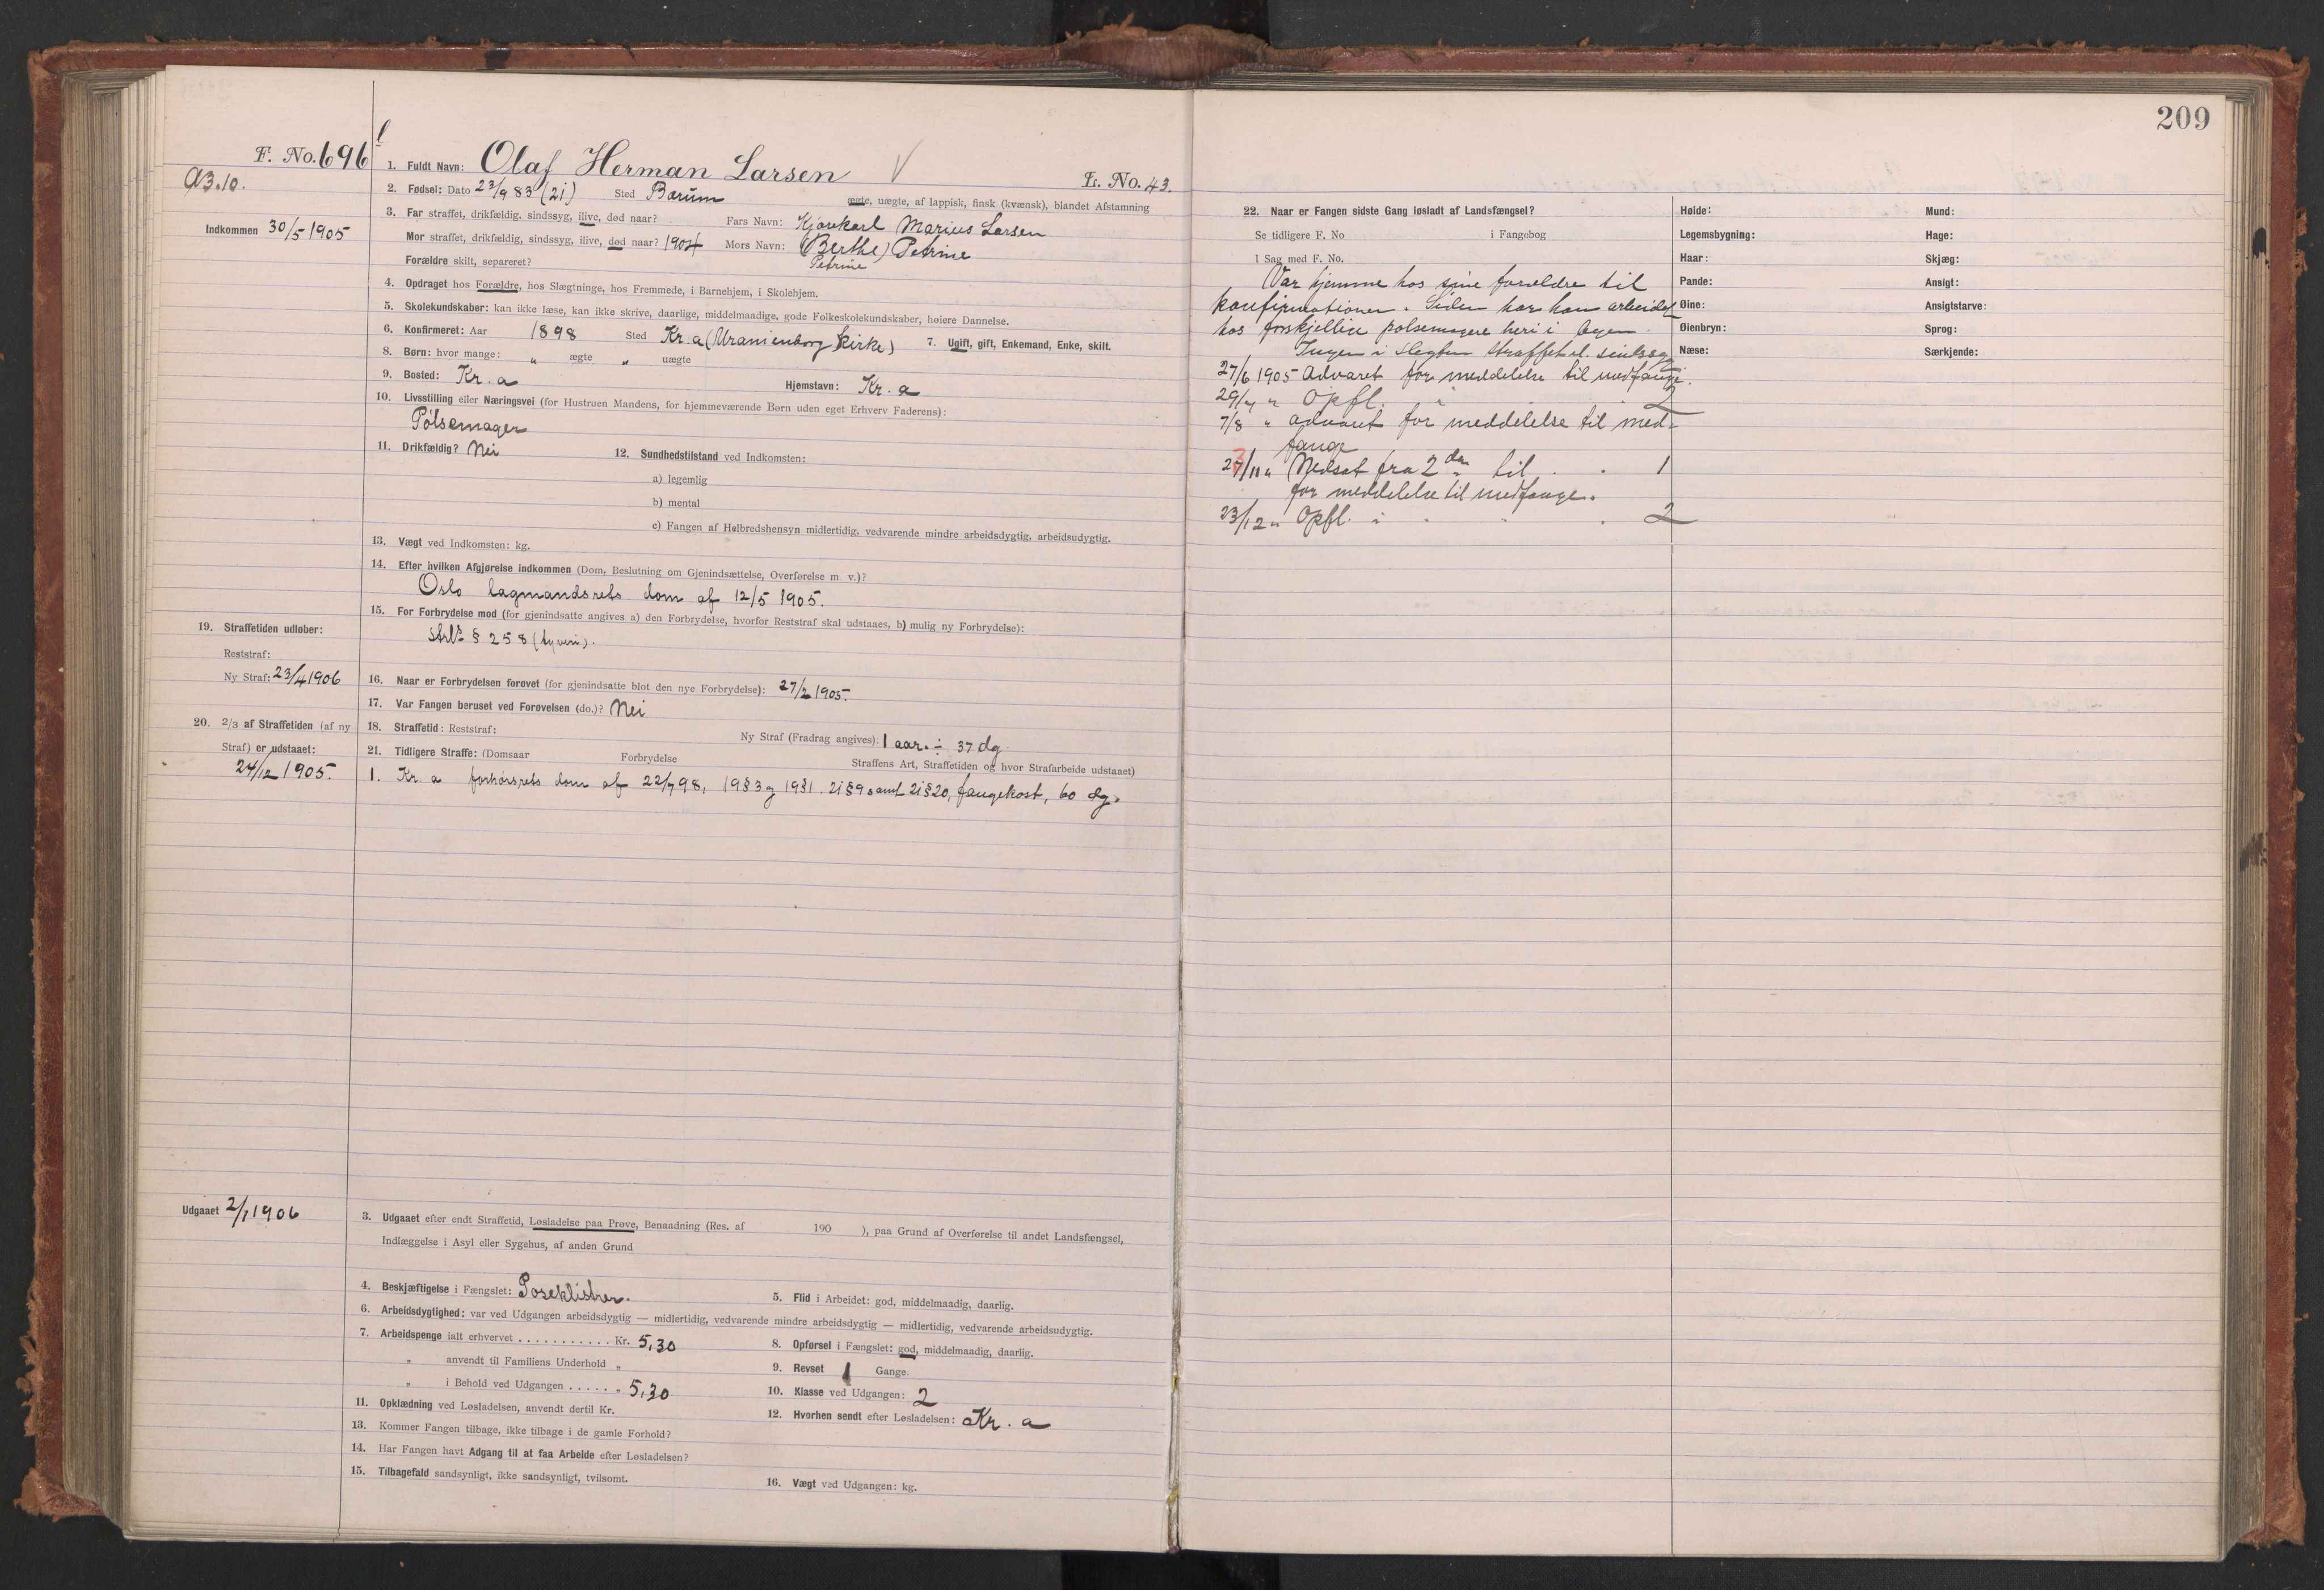 209
F. No. 696
A3.10.
1. Fuldt Navn: Olaf Herman Larsen
Fr. No. 43.
2. Fødsel: Dato 23/9 83 (21) Sted Bærum ægte, uægte, af lappisk, finsk (kvænsk), blandet Afstamning
Indkommen 30/5 1905
3. Far straffet, drikfældig, sindssyg, ilive, død naar? Fars Navn: Kjørekarl Marius Larsen
Mor straffet, drikfældig, sindssyg, ilive, død naar? 1904 Mors Navn: (Berthe) Petrine
Petrine
Forældre skilt, separeret?
4. Opdraget hos Forældre, hos Slægtninge, hos Fremmede, i Barnehjem, i Skolehjem.
5. Skolekundskaber: kan ikke læse, kan ikke skrive, daarlige, middelmaadige, gode Folkeskolekundskaber, høiere Dannelse.
6. Konfirmeret: Aar 1898 Sted Kr.a (Uranienborg kirke) 7. Ugift, gift, Enkemand, Enke, skilt.
8. Børn: hvor mange: „ ægte „ uægte
9. Bosted: Kr.a Hjemstavn: Kr.a
10. Livsstilling eller Næringsvei (for Hustruen Mandens, for hjemmeværende Børn uden eget Erhverv Faderens):
Pølsemager
11. Drikfældig? Nei 12. Sundhedstilstand ved Indkomsten:
a) legemlig
b) mental
c) Fangen af Helbredshensyn midlertidig, vedvarende mindre arbeidsdygtig, arbeidsudygtig.
13. Vægt ved Indkomsten: kg.
14. Efter hvilken Afgjørelse indkommen (Dom, Beslutning om Gjenindsættelse, Overførelse m. v.)?
Oslo lagmandsrets dom af 12/5 1905.
15. For Forbrydelse mod (for gjenindsatte angives a) den Forbrydelse, hvorfor Reststraf skal udstaaes, b) mulig ny Forbrydelse):
strl. § 258 (tyveri).
19. Straffetiden udløber:
Reststraf:
Ny Straf: 23/4 1906
16. Naar er Forbrydelsen forøvet (for gjenindsatte blot den nye Forbrydelse): 27/2 1905.
17. Var Fangen beruset ved Forøvelsen (do.)? Nei
20. 2/3 af Straffetiden (af ny
Straf) er udstaaet:
24/12 1905.
18. Straffetid: Reststraf: Ny Straf (Fradrag angives): 1 aar. ÷ 37 dg.
21. Tidligere Straffe: (Domsaar Forbrydelse Straffens Art, Straffetiden og hvor Strafarbeide udstaaet)
1. Kr.a forhørsrets dom af 22/9 98, 19§3 jg 19§1. 21§9 samt 21§20, fangekost, 60 dg.
Udgaaet 2/1 1906
3. Udgaaet efter endt Straffetid, Løsladelse paa Prøve, Benaadning (Res. af 190 ), paa Grund af Overførelse til andet Landsfængsel,
Indlæggelse i Asyl eller Sygehus, af anden Grund
4. Beskjæftigelse i Fængslet: Poseklistrer.
5. Flid i Arbeidet: god, middelmaadig, daarlig.
6. Arbeidsdygtighed: var ved Udgangen arbeidsdygtig — midlertidig, vedvarende mindre arbeidsdygtig — midlertidig, vedvarende arbeidsudygtig.
7. Arbeidspenge ialt erhvervet . . . . . . . . . . . Kr. 5,30
8. Opførsel i Fængslet: god, middelmaadig, daarlig.
„ anvendt til Familiens Underhold „
9. Revset 1 Gange.
„ i Behold ved Udgangen . . . . . . „ 5,30
10. Klasse ved Udgangen: 2
11. Opklædning ved Løsladelsen, anvendt dertil Kr.
12. Hvorhen sendt efter Løsladelsen: Kr.a
13. Kommer Fangen tilbage, ikke tilbage i de gamle Forhold?
14. Har Fangen havt Adgang til at faa Arbeide efter Løsladelsen?
15. Tilbagefald sandsynligt, ikke sandsynligt, tvilsomt.
16. Vægt ved Udgangen: kg.
22. Naar er Fangen sidste Gang løsladt af Landsfængsel?
Se tidligere F. No i Fangebog
I Sag med F. No.
Var hjemme hos sine forældre til
konfirmationen. Siden har han arbeidet
hos forskjellige pølsemagere heri i byen.
Ingen i slegten straffet el. sindssyg
27/6 1905 Advaret for meddelelse til medfange.
29/7 „ Opfl. i 2
7/8 „ advaret for meddelelse til med-
fange
27/11 „ Nedsat fra 2den til . . 1
3
for meddelelse til medfange.
23/12 „ Opfl. i . . . 2
Høide:
Legemsbygning:
Haar:
Pande:
Øine:
Øienbryn:
Næse:
Mund:
Hage:
Skjæg:
Ansigt:
Ansigtsfarve:
Sprog:
Særkjende: